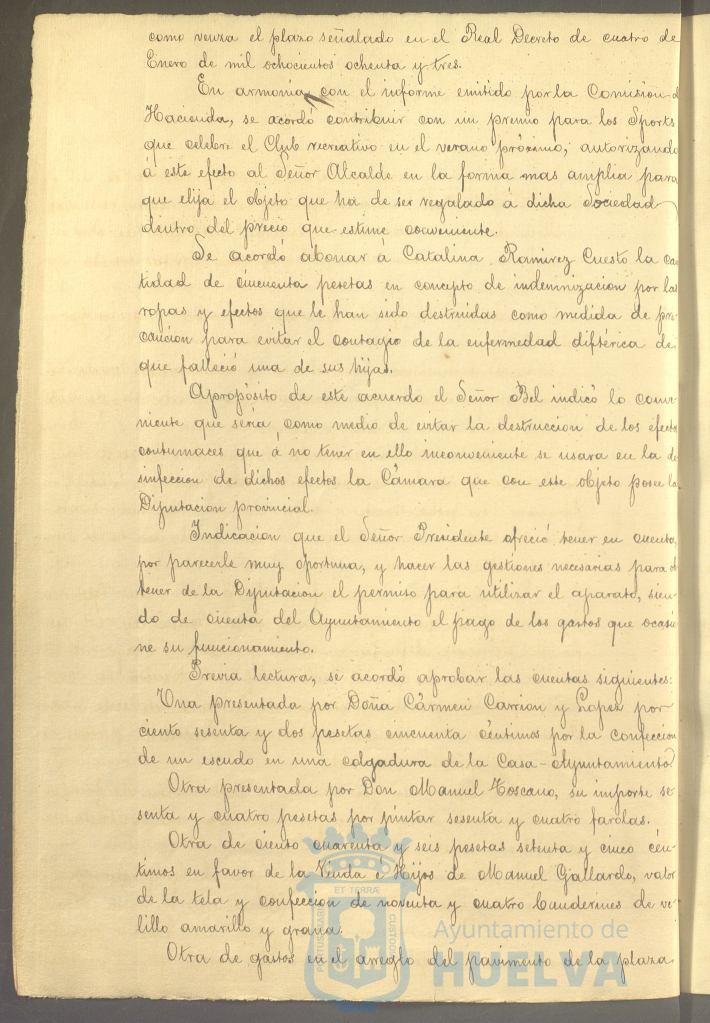 como venza el plazo señalado en el Real Decreto de cuatro de
Enero de mil ochocientos ochenta y tres.
En armonia, con el informe emitido por la Comision d
Hacienda, se acordó contribuir con un premio para los Sports
que celebre el Club recreativo en el verano próximo; autorizando
á este efecto al Señor Alcalde en la forma mas amplia para
que elija el objeto que há de ser regalado á dicha Sociedad
dentro del precio que estime conveniente.
Se acordó abonar á Catalina Ramirez Cuesto la can
tidad de cincuenta pesetas en concepto de indemnizacion por las
ropas y efectos que le han sido destruidas como medida de pre
caucion para evitar el contagio de la enfermedad diftérica de
que falleció una de sus hijas.
Apropósito de este acuerdo el Señor Bel indicó lo conve
niente que seria, como medio de evitar la destruccion de los efectos
contumaces que á no tener en ello inconveniente se usara en la de
sinfeccion de dichos efectos la Cámara que con este objeto posee la
Diputacion provincial.
Indicacion que el Señor Presidente ofreció tener en cuenta,
por parecerle muy oportuna, y hacer las gestiones necesarias para ob
tener de la Diputacion el permiso para utilizar el aparato, sien-
do de cuenta del Ayuntamiento el pago de los gastos que ocasio
ne su funcionamiento.
Previa lectura, se acordó aprobar las cuentas siguientes:
Una presentada por Doña Cármen Carrion y Lopez por
ciento sesenta y dos pesetas cincuenta céntimos por la confeccion
de un escudo en una colgadura de la Casa-Ayuntamiento
Otra presentada por Don Manuel Toscano, su importe se-
senta y cuatro pesetas por pintar sesenta y cuatro farolas.
Otra de ciento cuarenta y seis pesetas setenta y cinco cén-
timos en favor de la Viuda é Hijos de Manuel Gallardo, valor
de la tela y confeccion de noventa y cuatro banderines de ve-
lillo amarillo y grana.
Otra de gastos en el arreglo del pavimento de la plaza
ET TERRÆ
PORTUS MARIS
CUSTODIA
Ayuntamiento de
HUELVA